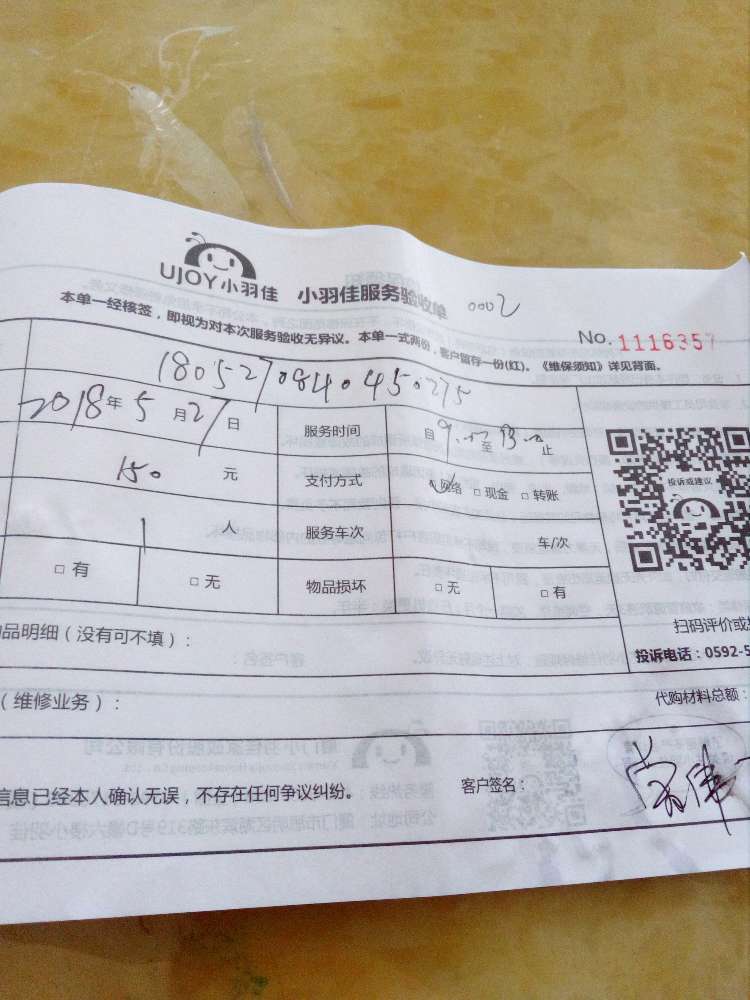 UJOY小羽佳 小羽佳服务验收单 0002
No. 1116357
本单一经核签，即视为对本次服务验收无异议。本单一式两份，客户留存一份(红)。《维保须知》详见背面。
1805270840450275
2018年5月27日 服务时间 自 至 止
150 元 支付方式 网络 □ 现金 □ 转账
投诉或建议
1 人 服务车次 车/次
□ 有 □ 无 物品损坏 □ 无 □ 有
品明细（没有可不填）：
扫码评价或
投诉电话：0592-5
（维修业务）：
代购材料总额：
信息已经本人确认无误，不存在任何争议纠纷。 客户签名：